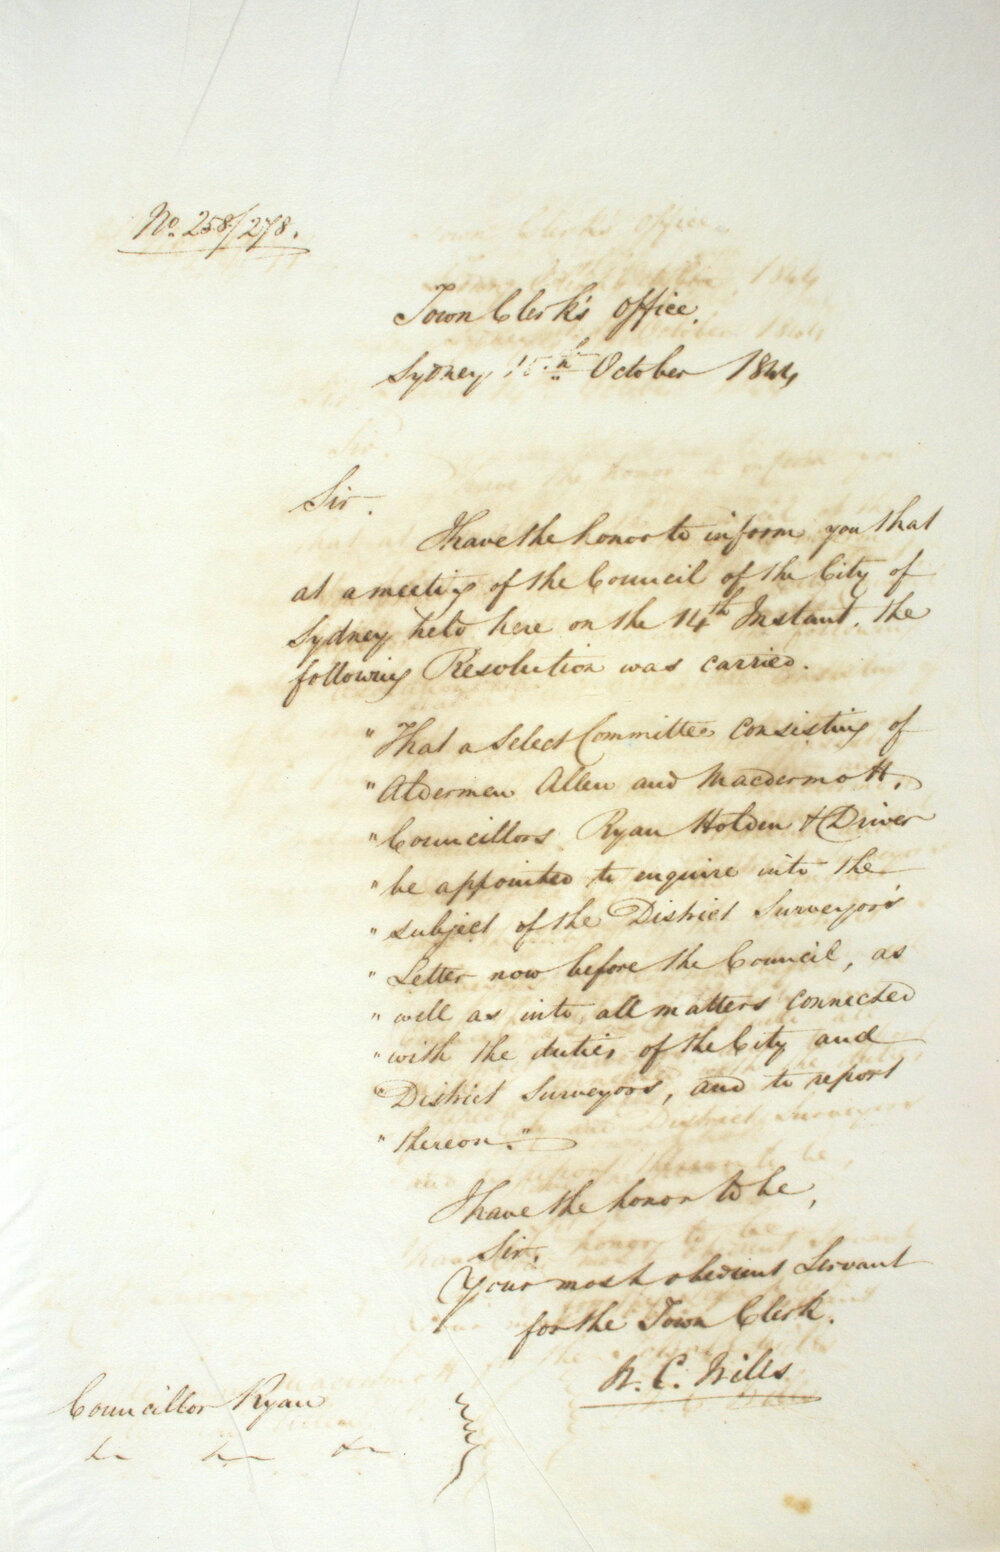 No. 258/278.
Town Clerk's Office.
Sydney 15th October 1844
Sir.
I have the honor to inform you that
at a meeting of the Council of the City of
Sydney held here on the 14th Instant. the
following Resolution was carried.
"That a Select Committee consisting of
"Aldermen Allen and Macdermott,
"Councillors Ryan Holden & Driver
"be appointed to enquire into the
"subject of the District Surveyor's
"Letter now before the Council, as
"well as into all matters connected
"with the duties of the City and
"District Surveyors, and to report
"thereon."
I have the honor to be,
Sir,
Your most obedient Servant
for the Town Clerk.
W. C. Wills
Councillor Ryan
&c &c &c